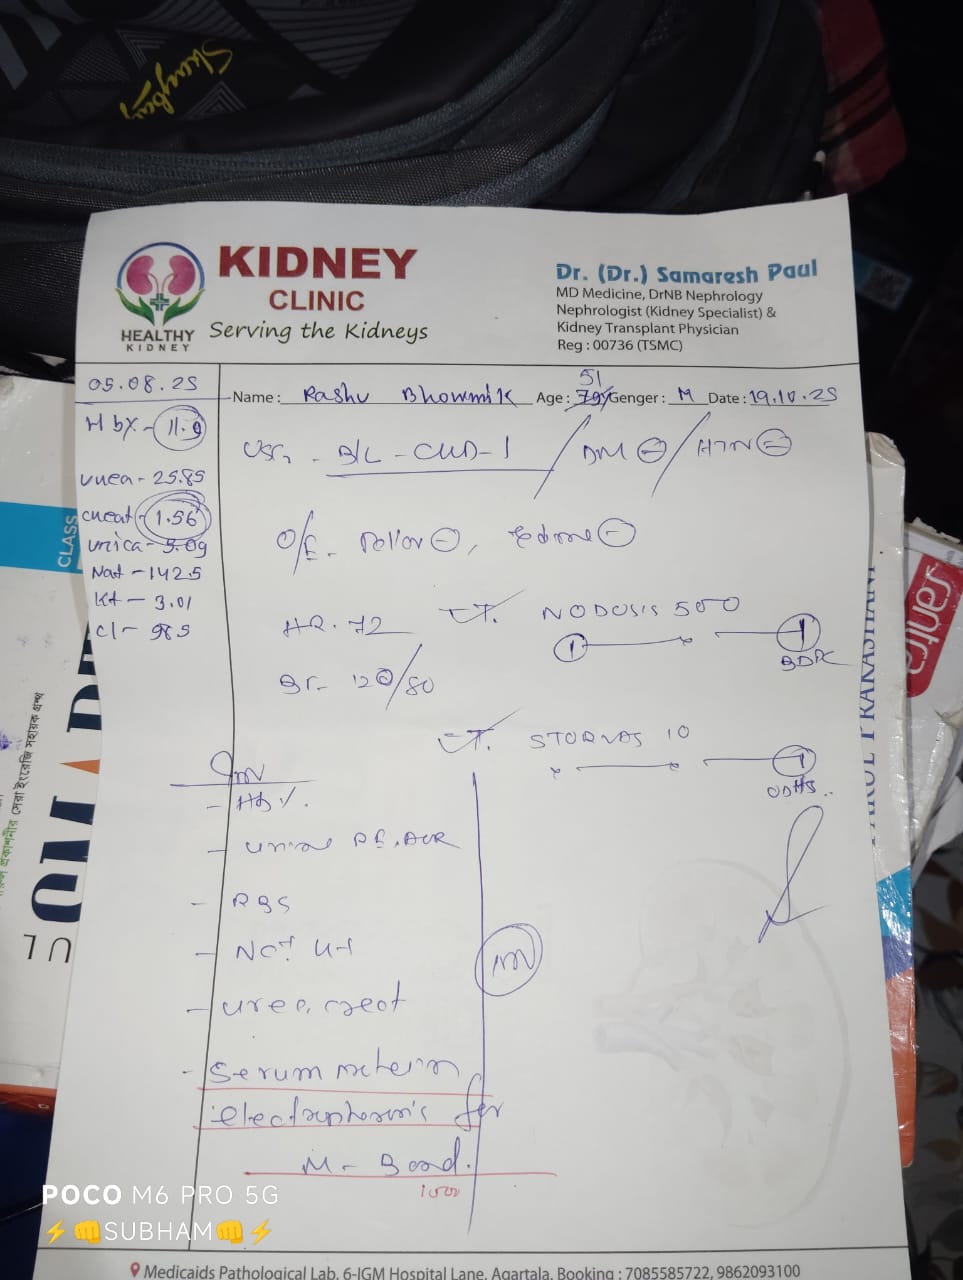 Shingbag
KIDNEY
CLINIC
Serving the Kidneys
HEALTHY
KIDNEY
Dr. (Dr.) Samaresh Paul
MD Medicine, DrNB Nephrology
Nephrologist (Kidney Specialist) &
Kidney Transplant Physician
Reg : 00736 (TSMC)
05.08.25
Name: Rashu Bhowmik Age: 51 Genger: M Date: 19.10.25
Hb%- 11.9
urea- 25.85
creat- 1.56
urica- 5.09
Na+ -142.5
K+ - 3.01
cl- 98.5
USG - B/L - CKD-1 / DM - / HTN -
O/E - Pallor -, Edema -
HR. 72
BP- 120/80
T. NODOSIS 500
1 x 1
BDPC
T. STORVAS 10
x x 1
ODHS
Inv
- Hb%.
- urine RE, ACR
- RBS
- Na+ K+
- urea, creat
- Serum protein
electrophoresis for
M- Band.
1000
CLASS
santra
PARUL PRAKASHANI
POCO M6 PRO 5G
⚡👊SUBHAM👊⚡
Medicaids Pathological Lab, 6-IGM Hospital Lane, Agartala, Booking : 7085585722, 9862093100